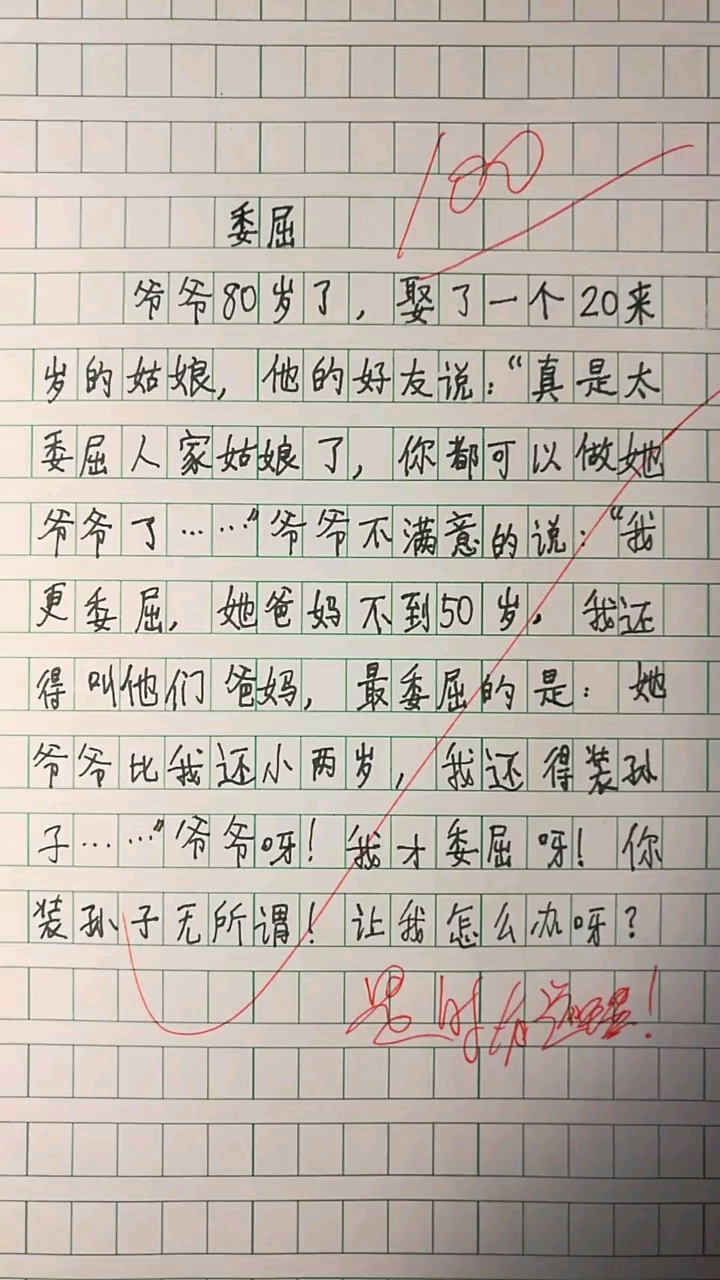 100
委屈
爷爷80岁了，娶了一个20来
岁的姑娘，他的好友说：“真是太
委屈人家姑娘了，你都可以做她
爷爷了……”爷爷不满意的说：“我
更委屈，她爸妈不到50岁，我还
得叫他们爸妈，最委屈的是：她
爷爷比我还小两岁，我还得装孙
子……”爷爷呀！我才委屈呀！你
装孙子无所谓！让我怎么办呀？